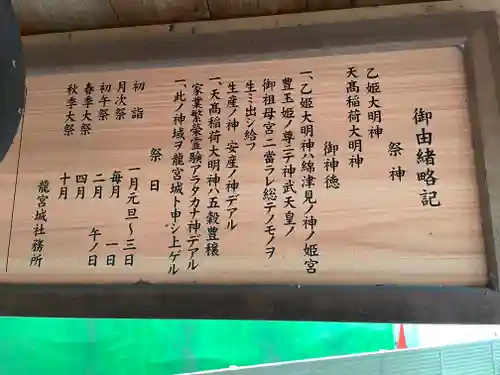 御由緒略記
祭神
乙姫大明神
天髙稲荷大明神
御神徳
一、乙姫大明神ハ綿津見ノ神ノ姫宮
豊玉姫ノ尊ニテ神武天皇ノ
御祖母宮ニ當ラレ総テノモノヲ
生ミ出シ給フ
生産ノ神 安産ノ神デアル
一、天髙稲荷大明神ハ五穀豊穣
家業繁栄霊験アラタカナ神デアル
一、此ノ神域ヲ龍宮城ト申シ上ゲル
祭日
初詣 一月元旦〜三日
月次祭 毎月 一日
初午祭 二月 午ノ日
春季大祭 四月
秋季大祭 十月
龍宮城社務所